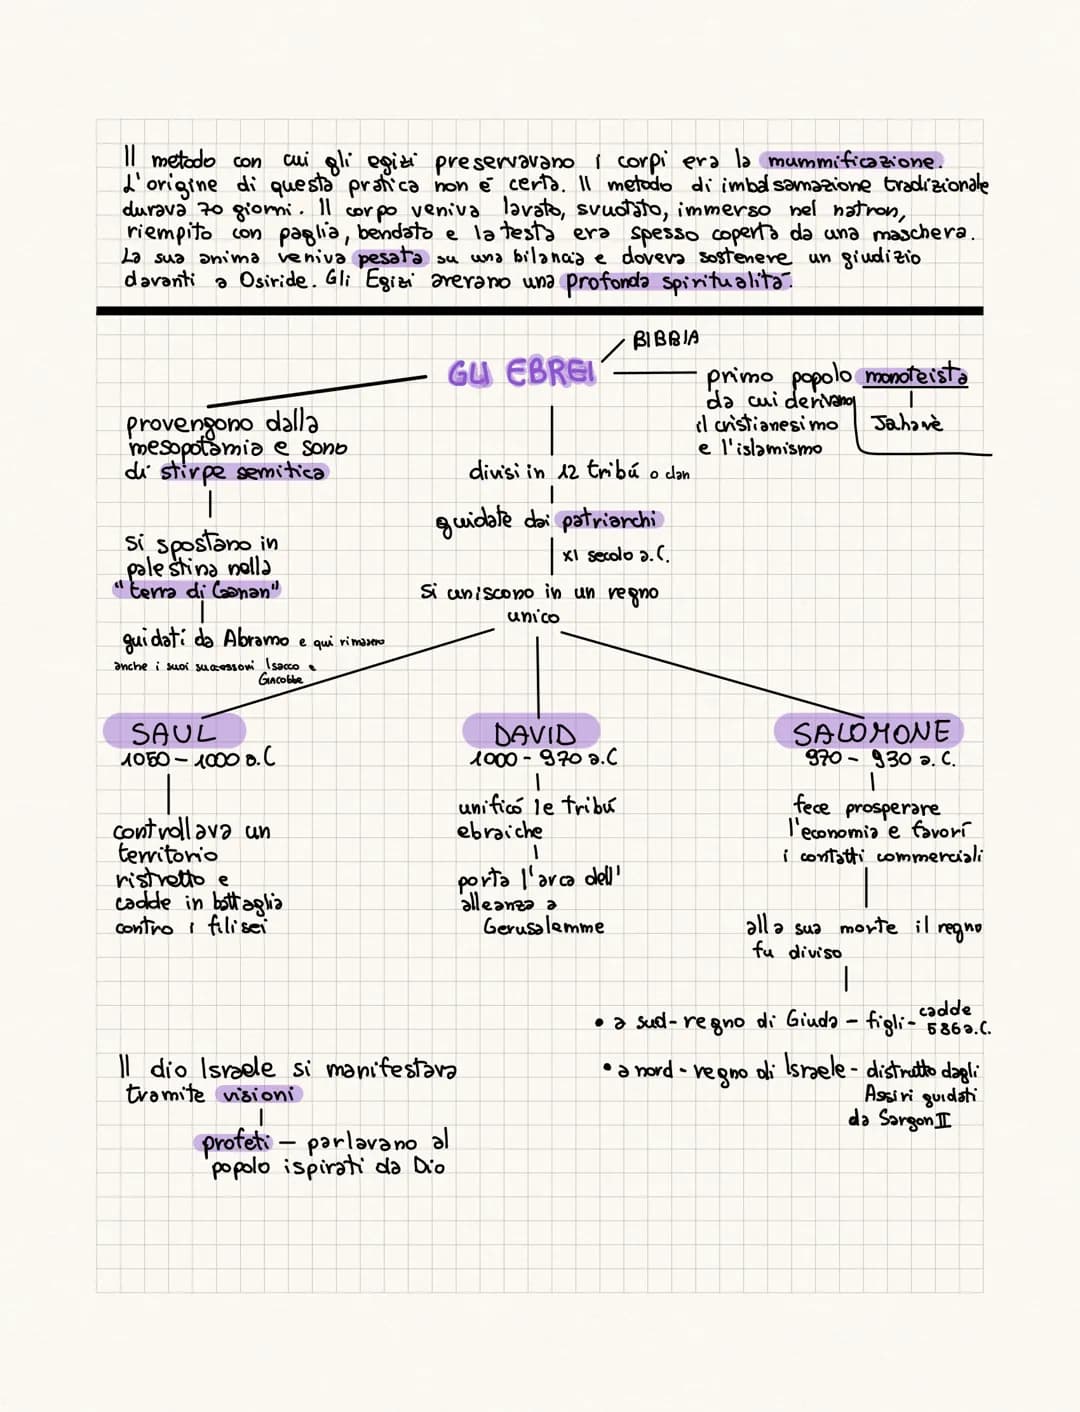 Il metodo con cui gli egizi preservavano i corpi era la mummificazione.
L'origine di questa pratica non é certa. Il metodo di imbalsamazione tradizionale
durava 70 giorni. Il corpo veniva lavato, svuotato, immerso nel natron,
riempito con paglia, bendato e la testa era spesso coperta da una maschera.
La sua anima veniva pesata su una bilancia e doveva sostenere un giudizio
davanti a Osiride. Gli Egizi avevano una profonda spiritualitá.
BIBBIA
GLI EBREI
primo popolo monoteista
da cui derivano
il cristianesimo
e l'islamismo
Jahavè
provengono dalla
mesopotamia e sono
di stirpe semitica
si spostano in
palestina nella
"terra di Canan"
guidati da Abramo e qui rimasero
anche i suoi successori Isacco e
Giacobbe
divisi in 12 tribú o clan
guidate dai patriarchi
XI secolo a.C.
si uniscono in un regno
unico
SAUL
1050 - 1000 a.C
controllava un
territorio
ristretto e
cadde in battaglia
contro i filisei
DAVID
1000 - 970 a.C
unificó le tribú
ebraiche
porta l'arca dell'
alleanza a
Gerusalemme
SALOMONE
970 - 930 a.C.
fece prosperare
l'economia e favorí
i contatti commerciali
alla sua morte il regno
fu diviso
• a sud - regno di Giuda - figli - cadde
586 a.C.
• a nord - regno di Israele - distrutto dagli
Assiri guidati
da Sargon II
Il dio Israele si manifestava
tramite visioni
profeti - parlavano al
popolo ispirati da Dio